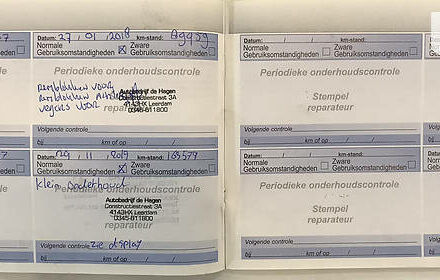 Datum: 27 / 01 / 2018 km-stand:
Normale Gebruiksomstandigheden Zware Gebruiksomstandigheden
Periodieke onderhoudscontrole
Remblokken voor
Autobedrijf de Hagen
Constructiestraat 3A
4143HX Leerdam
0345-611800
Volgende controle
bij km of op / /
Datum: 29 / 11 / 2019 km-stand:
Normale Gebruiksomstandigheden Zware Gebruiksomstandigheden
Periodieke onderhoudscontrole
Klein onderhoud
Autobedrijf de Hagen
Constructiestraat 3A
4143HX Leerdam
0345-611800
Volgende controle: zie display
bij km of op / /
Datum: / / km-stand:
Normale Gebruiksomstandigheden Zware Gebruiksomstandigheden
Periodieke onderhoudscontrole
Stempel
reparateur
Volgende controle:
bij km of op / /
Datum: / / km-stand:
Normale Gebruiksomstandigheden Zware Gebruiksomstandigheden
Periodieke onderhoudscontrole
Stempel
reparateur
Volgende controle:
bij km of op / /